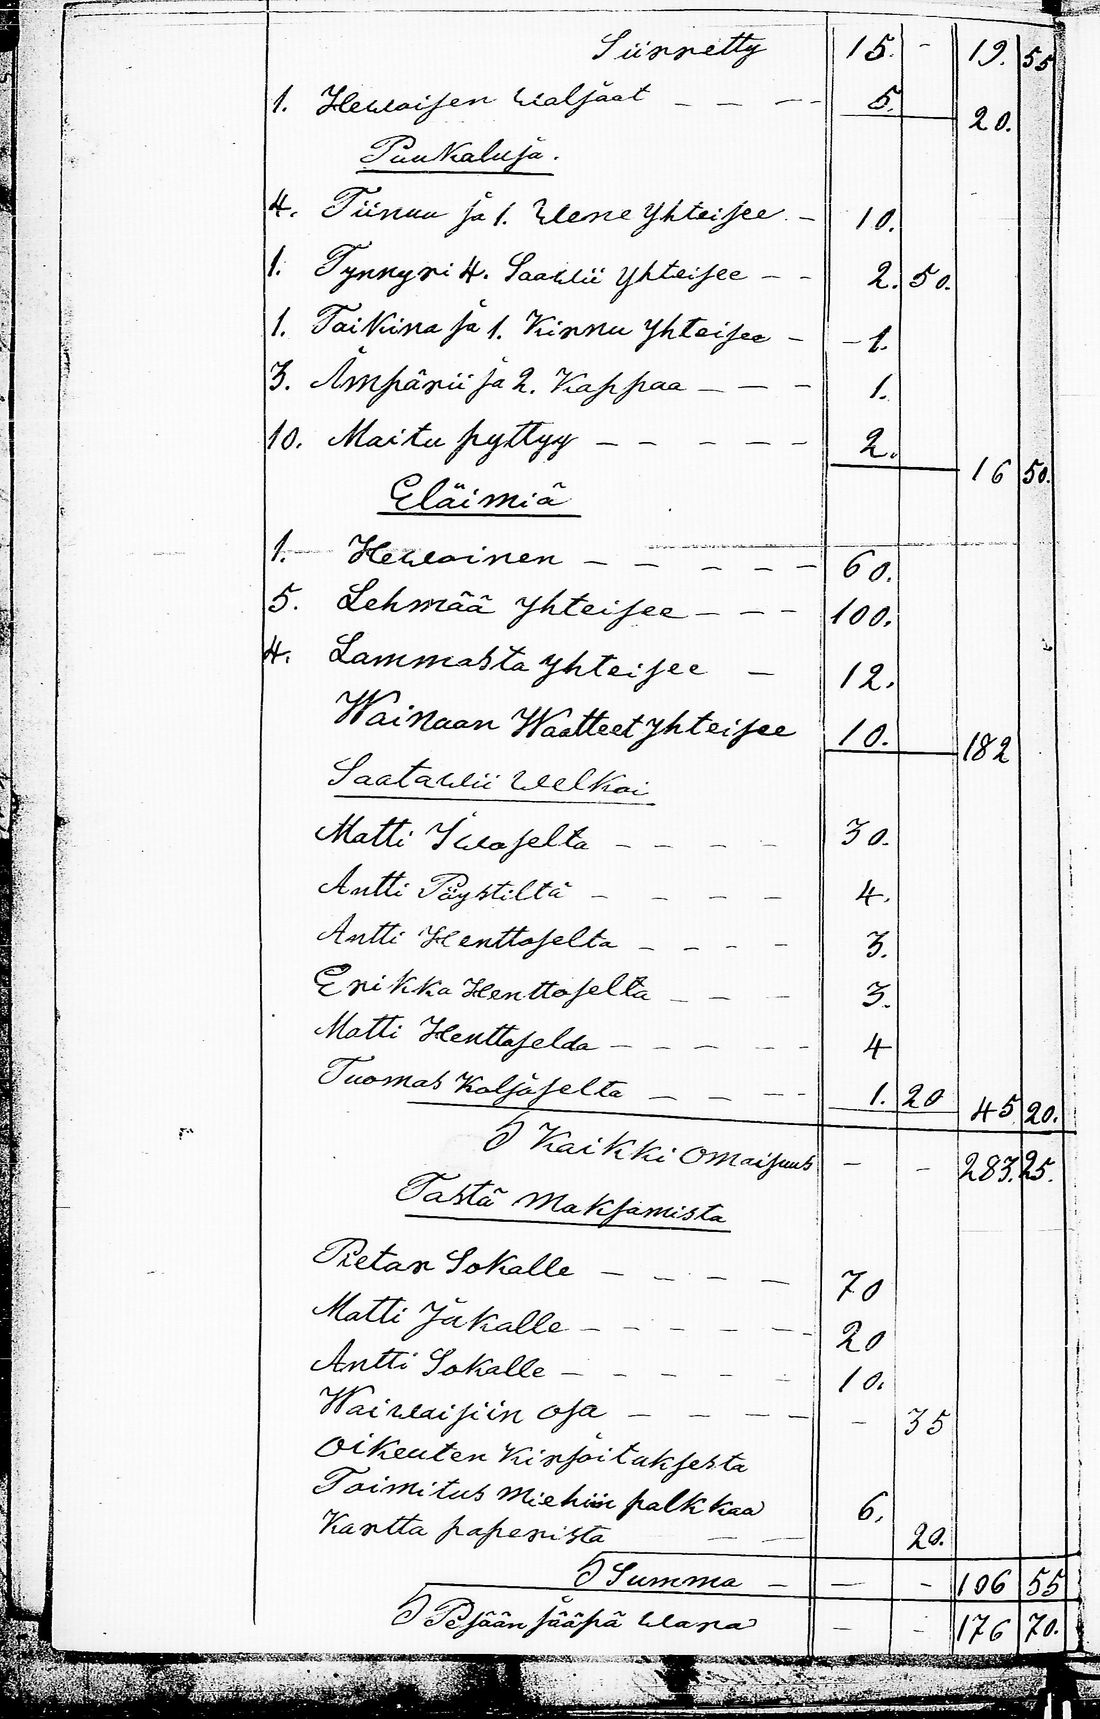 Siirretty 15. - 19. 55
1. Hewoisen waljaat - - - 5. 20.
Puukaluja.
4. Tiinuu ja 1. Wene yhteisee - 10.
1. Tynnyri 4. Saawii yhteisee - - 2. 50.
1. Taikina ja 1. Kirnu yhteisee - - 1.
3. Ämpärii ja 2. Kappaa - - - 1.
10. Maitu pyttyy - - - - - 2. 16 50.
Eläimiä
1. Hewoinen - - - - - 60.
5. Lehmää yhteisee - - - 100.
4. Lammasta yhteisee - 12.
Wainaan Waatteet yhteisee 10. 182
Saatawii welkoi
Matti Iwoselta - - - - 30.
Antti Päystiltä - - - - 4.
Antti Henttoselta - - - - 3.
Erikka Henttoselta - - - 3.
Matti Henttoselda - - - - - 4
Tuomas Koljoselta - - - - 1. 20 45 20.
Kaikki omaisuus - - 283. 25.
Tästä maksamista
Pietar Sokalle - - - - 70
Matti Jukalle - - - - - 20
Antti Sokalle - - - - - 10.
Waiwaisiin osa - - - - - 35
Oikeuten Kirjoituksesta
Toimitus miehiin palkkaa 6.
Kartta paperista - - 20.
Summa - - - 106 55
Pesään jääpä wara - - 176 70.